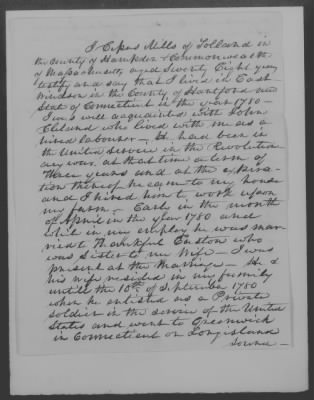 I Cephas Mills of Tolland in
the County of Hampden & Commonwealth
of Massachusetts aged Seventy Eight years
testify and say that I lived in East
Windsor in the County of Hartford and
State of Connecticut in the year 1780 -
I was well acquainted with John
Cleland who lived with me as a
hired labourer - He had been in
the United Service in the Revolution
ary war at that time a term of
three years and at the expira
tion thereof he came to my house
and I hired him to work upon
my farm - Early in the month
of April in the year 1780 and
while in my employ he was mar
ried to Thankful Easton who
was Sister to my Wife - I was
present at the Marriage - He &
his wife resided in my family
until the 10th of September 1780
when he enlisted as a Private
soldier in the service of the United
States and went to Greenwich
in Connecticut on Long island
Sound -